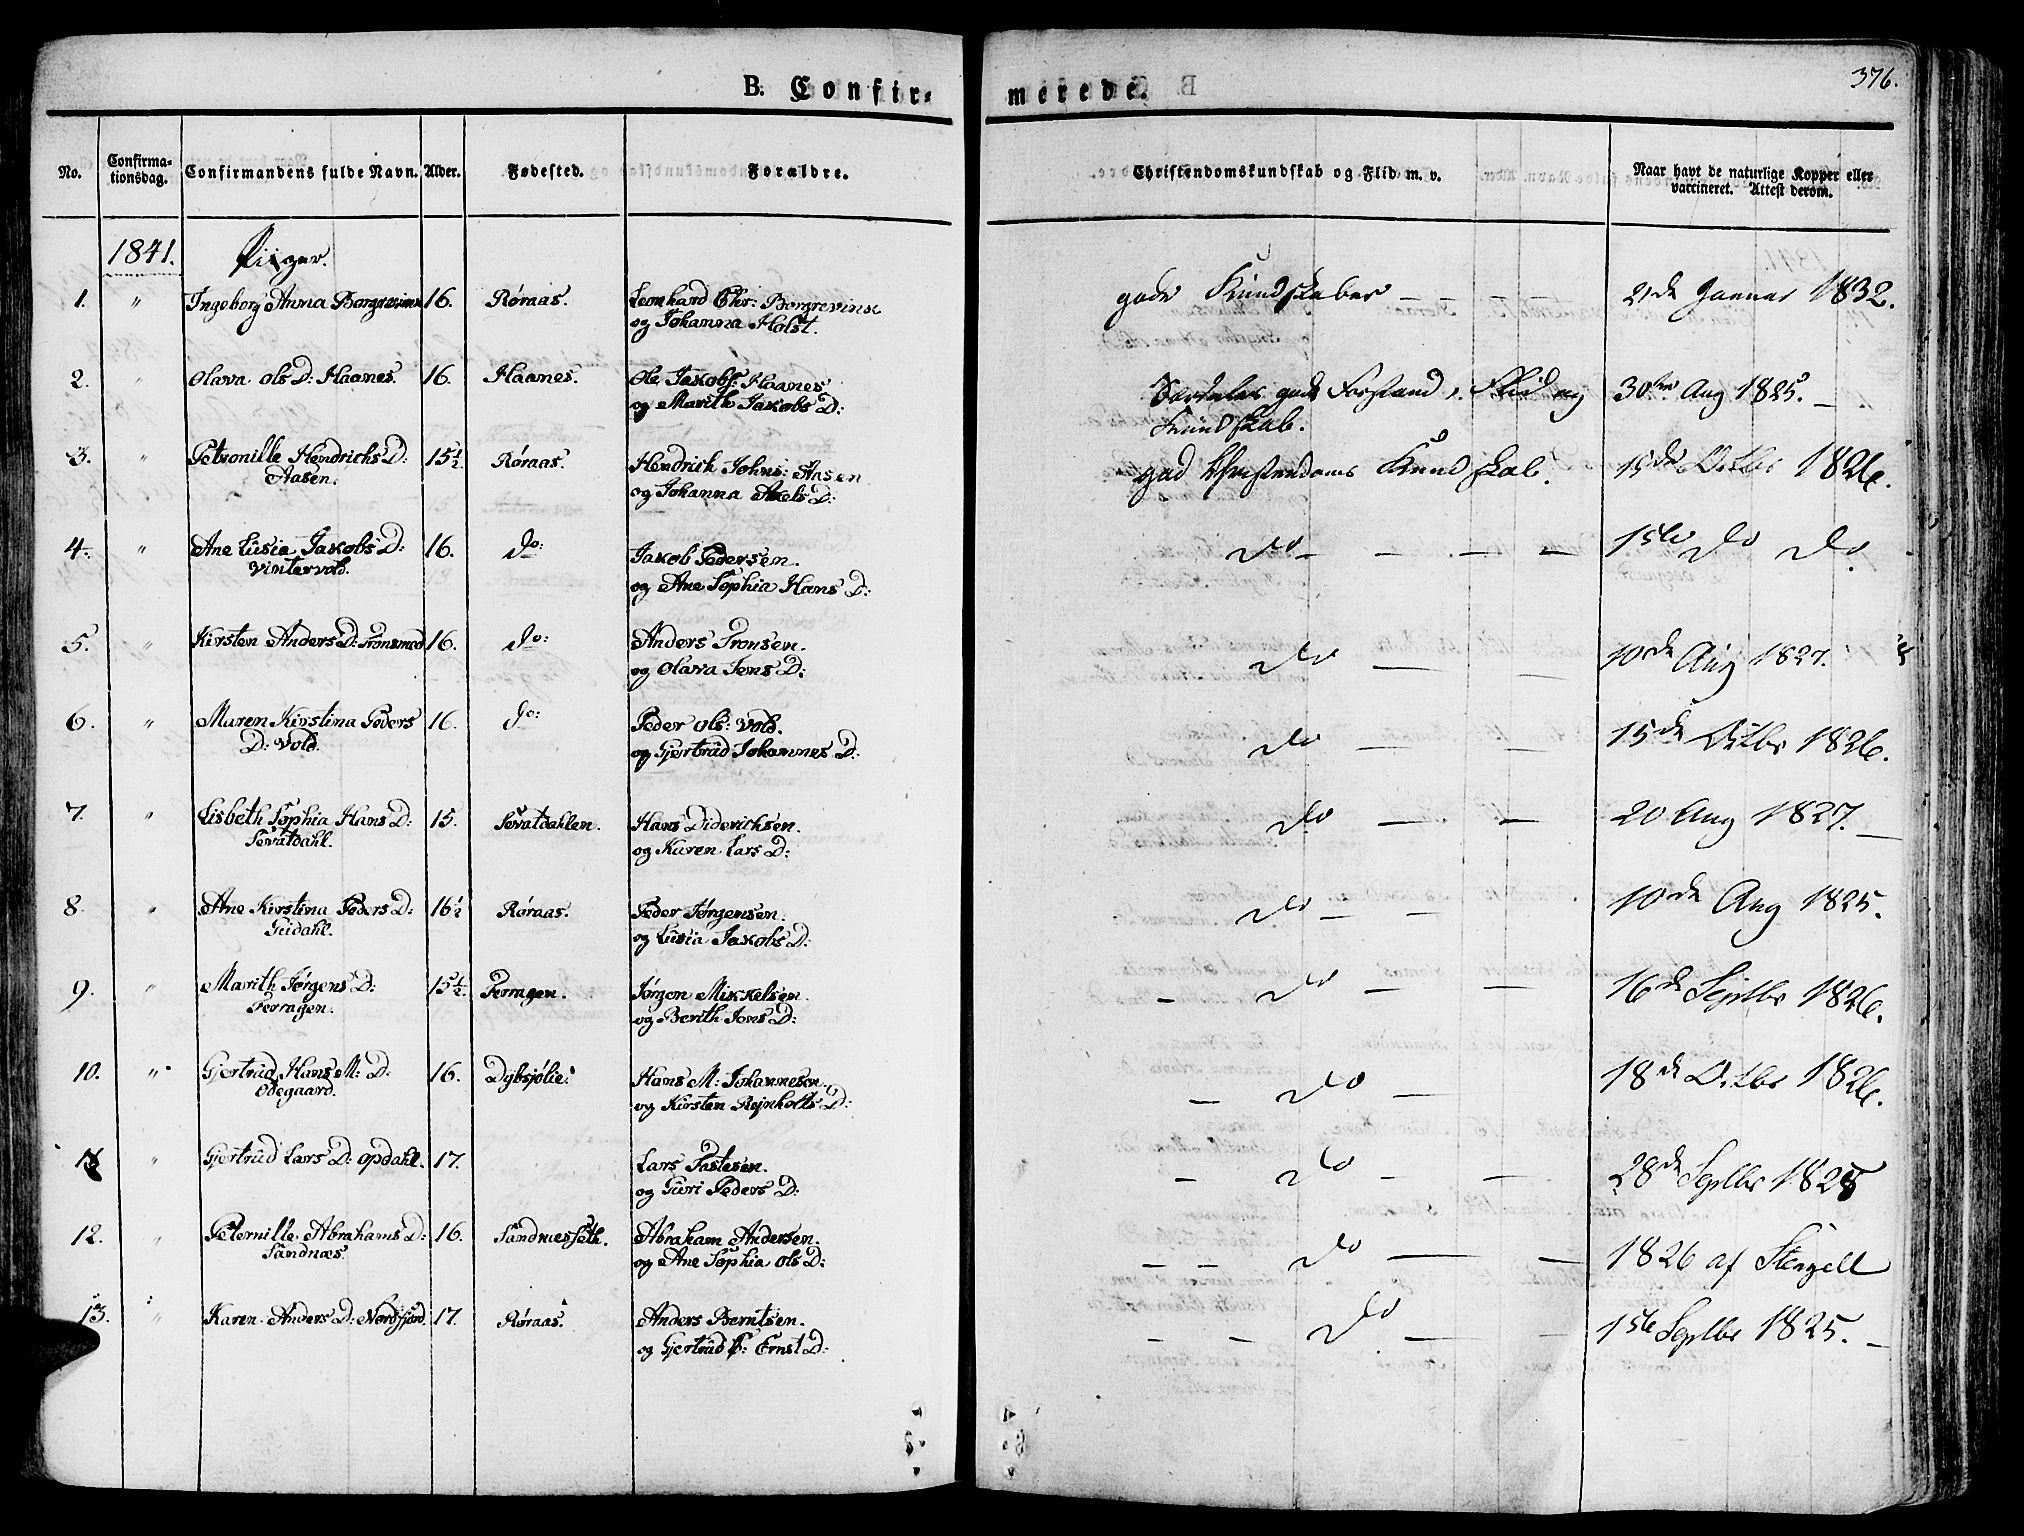 B. Confir-
merede.
376.
No.
Confirma-
tionsdag.
Confirmandens fulde Navn.
Alder.
Fødested.
Forældre.
Christendomskundskab og Flid m. v.
Naar havt de naturlige Kopper eller
vaccineret. Attest derom.
1841. Piiger.
1. " Ingeborg Anna Borgrevink 16. Røraas. Leonhard Chr: Borgrevink gode Kundskaber — — — — 21de Januar 1832.
og Johanna Holst.
2. " Olava Ols D: Haanes. 16. Haanes. Ole Jakobs: Haanes gode Forstand, Flid og 30te Aug 1825. —
og Marith Jakobs D: Kundskab.
3. " Petronille Hendrichs D: 15½ Røraas. Hendrich Johns: Aasen god Christendoms Kundskab. 15de Octbr 1826.
Aasen. og Johanna Axels D:
4. " Ane Lusia Jakobs D: 16. do: Jakob Pedersen. do — — — — 15de do do.
Vintervold. og Ane Sophia Hans D:
5. " Kirsten Anders D: Tronsmed 16. do: Anders Tronsen. do — — 10de Aug 1827.
og Olava Jens D:
6. " Maren Kirstina Peders 16. do: Peder Ols: Vold. do — — 15de Octbr 1826.
D: Vold. og Gjertrud Johannes D:
7. " Lisbeth Sophia Hans D: 15. Sevatdahlen. Hans Diderichsen. do — — 20 Aug 1827. —
Sevatdahl. og Karen Lars D:
8. " Ane Kirstina Peders D: 16½ Røraas. Peder Jørgensen. do — — 10de Aug 1825.
Gudahl. og Lusia Jakobs D:
9. " Marith Jørgens D: 15½ Ferragen. Jørgen Mikkelsen. — do — — 16de Septbr 1826.
Ferragen. og Berith Jons D:
10. " Gjertrud Hans M: D: 16. Dybsjølie. Hans M: Johannesen. — do — 18de Octbr 1826.
Ødegaard. og Kirsten Rejnholts D:
11. " Gjertrud Lars D: Opdahl. 17. Lars Tastesen. — do — — 28de Septbr 1825
og Guri Peders D:
12. " Peternille Abrahams D: 16. Sandnesseth. Abraham Andersen. — — do — — 1826 af Stengell
Sandnæs. og Ane Sophia Ols D:
13. " Karen Anders D: Nordfjord. 17. Røraas. Anders Berntsen. — — do — — 1ste Septbr 1825. —
og Gjertrud Ernst D: